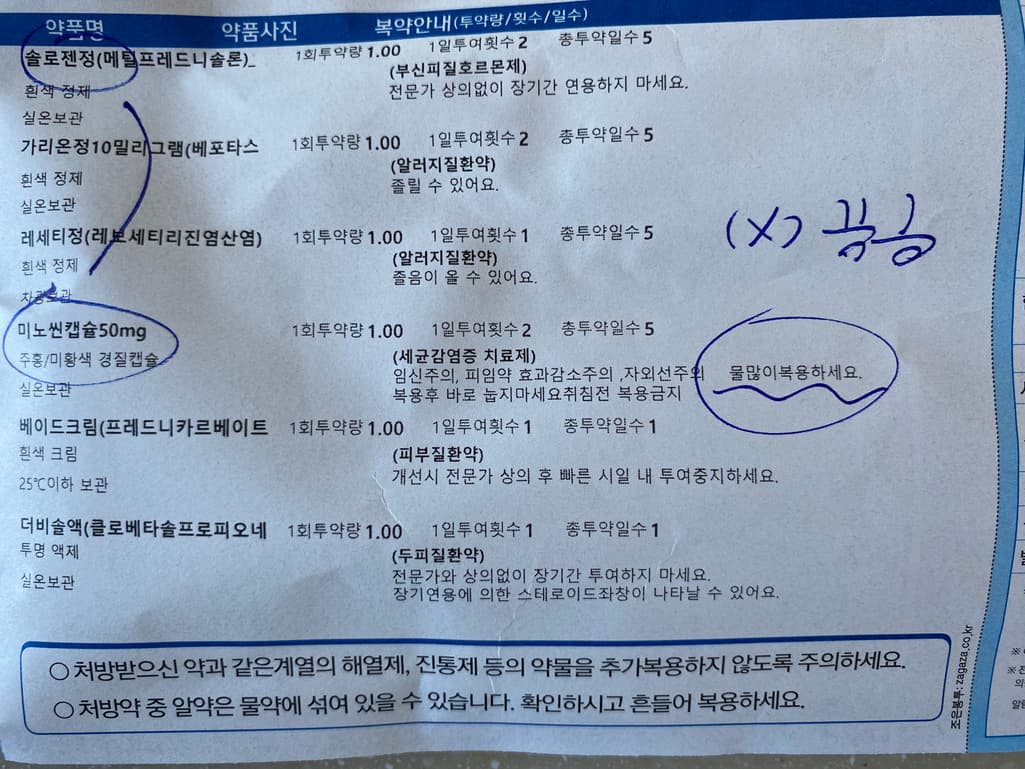 약품명 약품사진 복약안내(투약량/횟수/일수)
솔로젠정(메틸프레드니솔론)_ 1회투약량 1.00 1일투여횟수 2 총투약일수 5
(부신피질호르몬제)
흰색 정제 전문가 상의없이 장기간 연용하지 마세요.
실온보관
가리온정10밀리그램(베포타스 1회투약량 1.00 1일투여횟수 2 총투약일수 5
(알러지질환약)
흰색 정제 졸릴 수 있어요.
실온보관
레세티정(레보세티리진염산염) 1회투약량 1.00 1일투여횟수 1 총투약일수 5
(X)
(알러지질환약)
흰색 정제 졸음이 올 수 있어요.
차광보관
미노씬캡슐50mg 1회투약량 1.00 1일투여횟수 2 총투약일수 5
(세균감염증 치료제)
주홍/미황색 경질캡슐 임신주의, 피임약 효과감소주의 ,자외선주의 물많이복용하세요.
실온보관 복용후 바로 눕지마세요취침전 복용금지
베이드크림(프레드니카르베이트 1회투약량 1.00 1일투여횟수 1 총투약일수 1
흰색 크림 (피부질환약)
25℃이하 보관 개선시 전문가 상의 후 빠른 시일 내 투여중지하세요.
더비솔액(클로베타솔프로피오네 1회투약량 1.00 1일투여횟수 1 총투약일수 1
투명 액제 (두피질환약)
실온보관 전문가와 상의없이 장기간 투여하지 마세요.
장기연용에 의한 스테로이드좌창이 나타날 수 있어요.
○ 처방받으신 약과 같은계열의 해열제, 진통제 등의 약물을 추가복용하지 않도록 주의하세요.
○ 처방약 중 알약은 물약에 섞여 있을 수 있습니다. 확인하시고 흔들어 복용하세요.
조은봉투: zagaza.co.kr